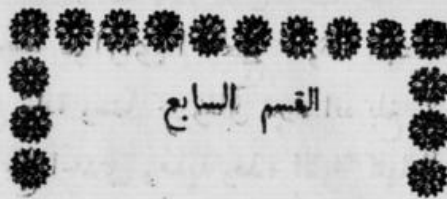 القسم السابع